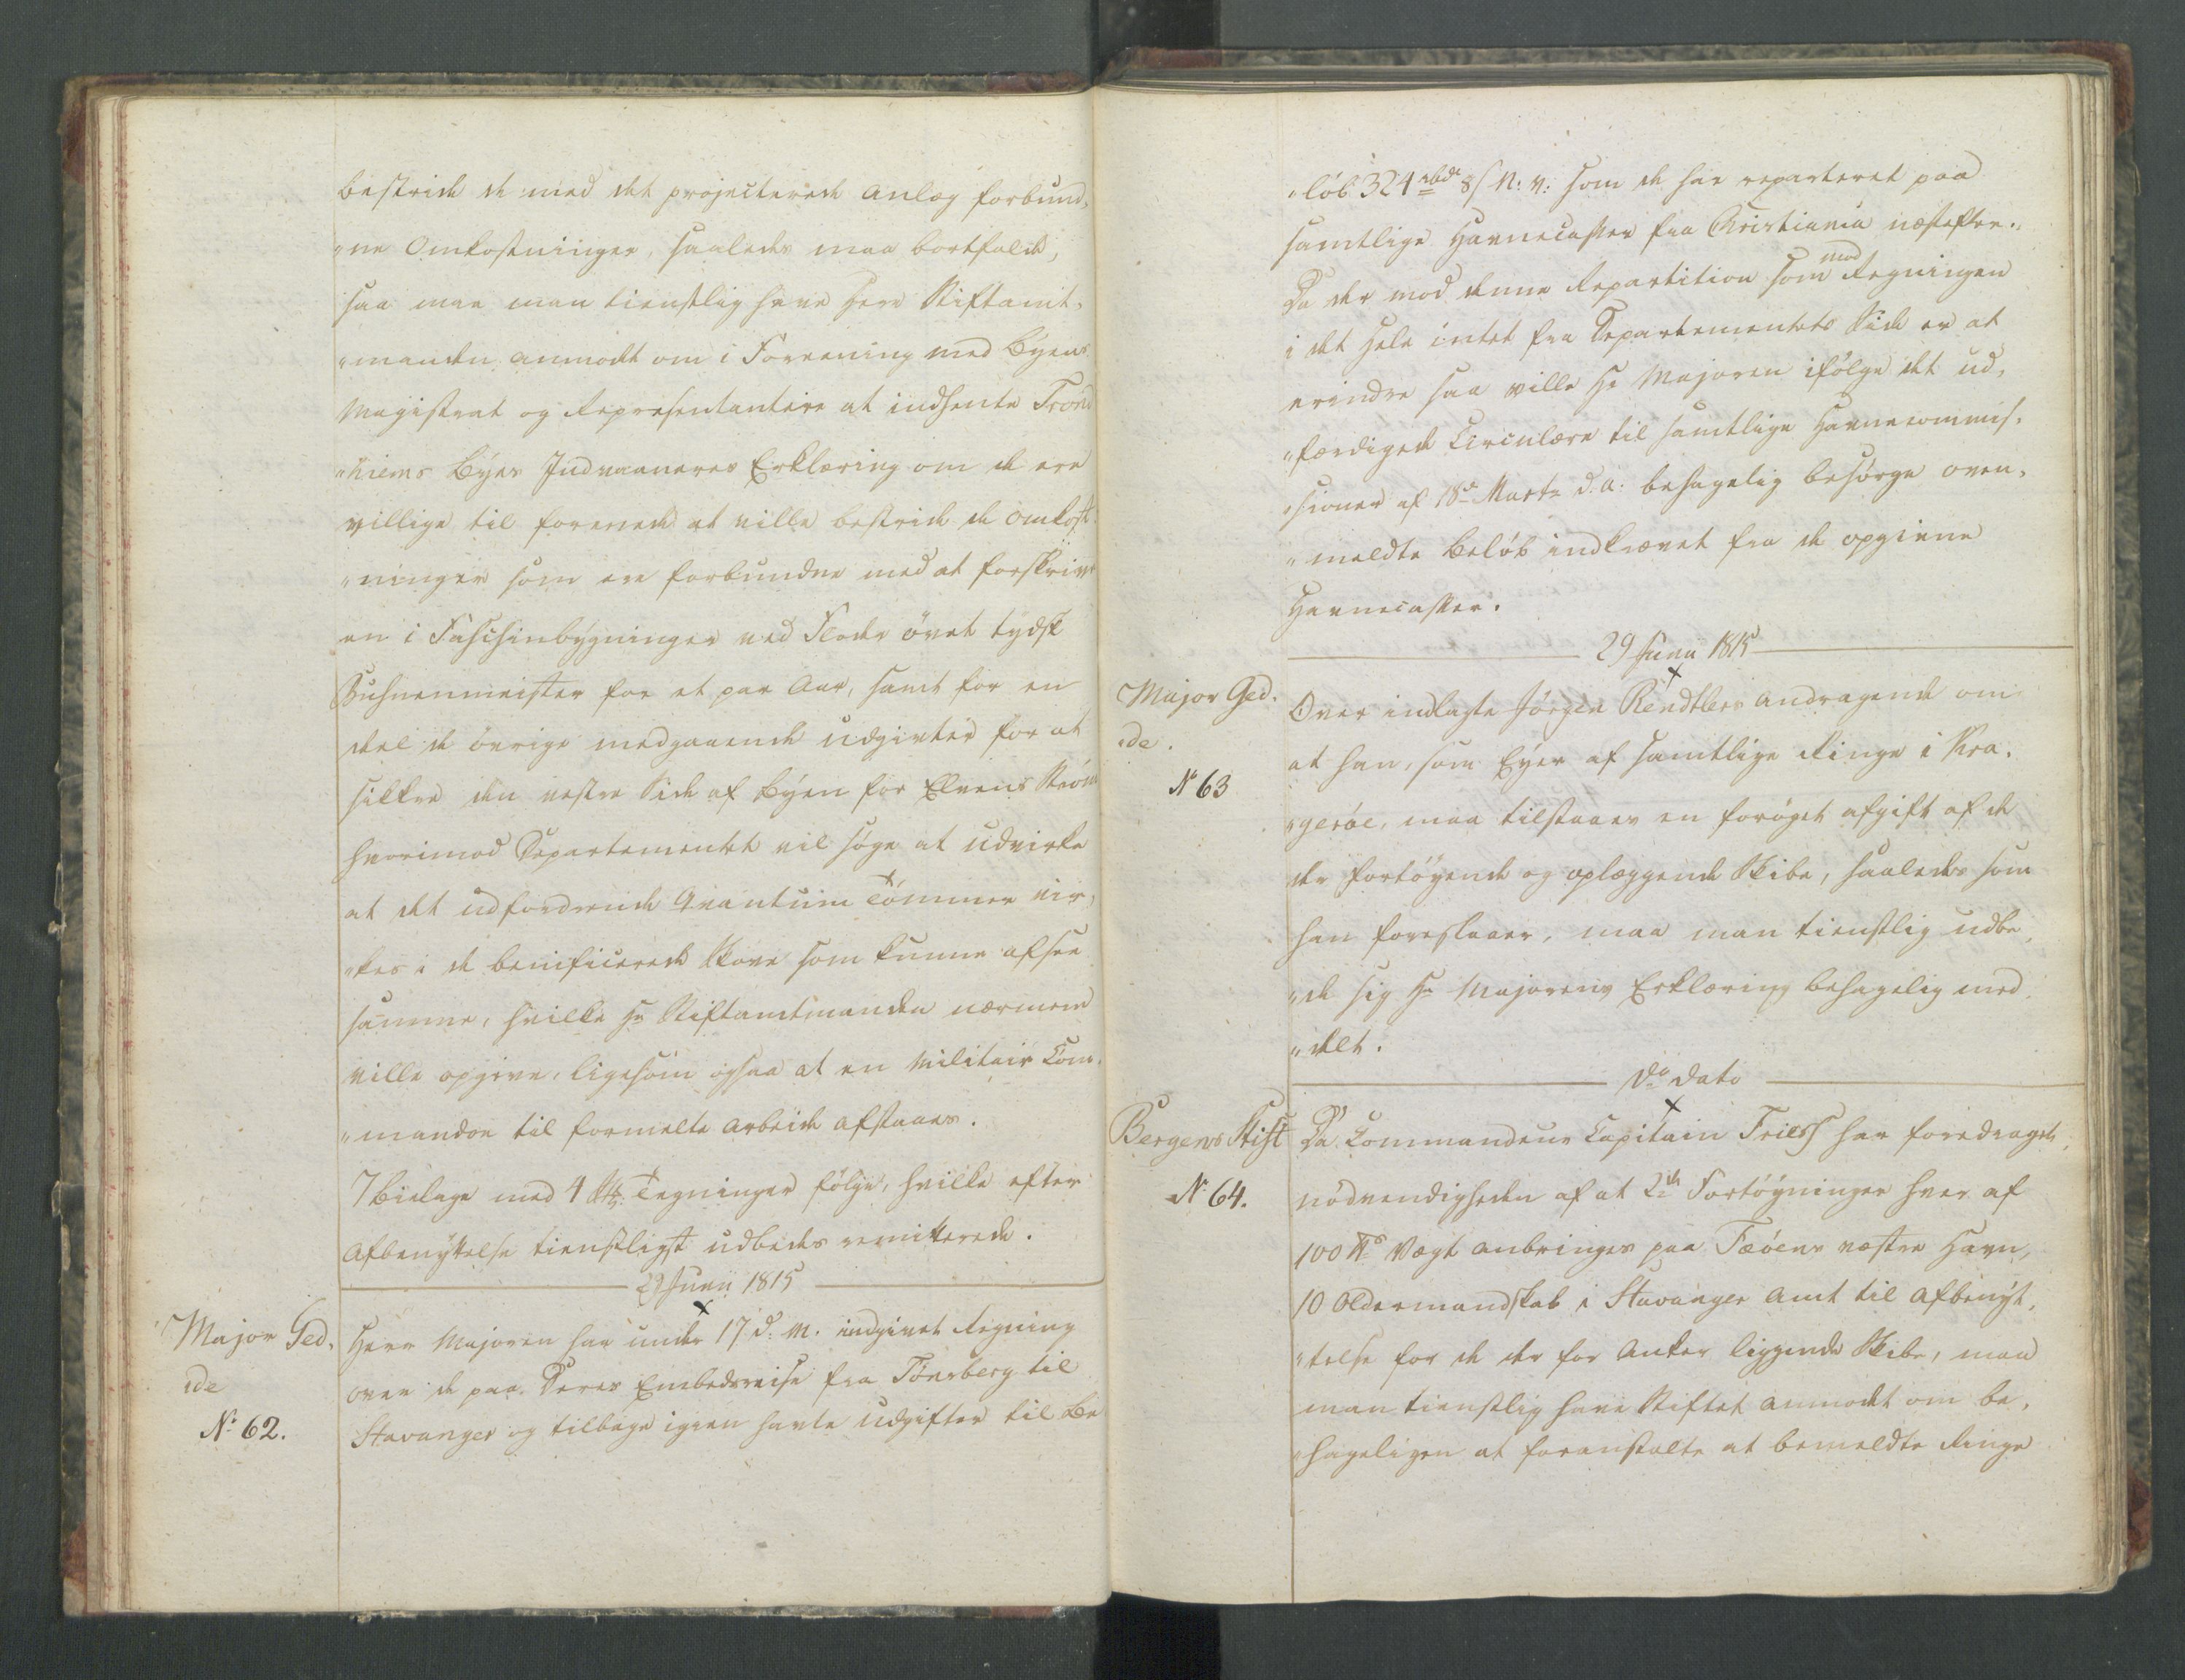 bestride de med det projecterede Anlæg forbund,
"ne Omkostninger, saaledes maa bortfalde,
saa maa man tienstlig have Herr Stiftamt,
"manden anmodet om i Forening med Byens
Magistrat og Repræsentantere at indhente Trond
"hiems Byes Indvaaneres Erklæring om de ere
villige til foreneede at ville bestride de Omkost
"ninger som ere forbundne med at forskrive
en i Faschinbygninger ved Floder övet tydsk
Buhnenmeister for et par Aar, samt for en
deel de övrige medgaaende Udgivter for at
sikkre den vestre Side af Byen for Elvens Ström
hvorimod Departementet vil söge at udvirke
at det udfordrende Qvantum Tömmer vir,
"kes i de benificerede Skove som kunne afsee
samme, hvilke Hr Stiftamtmanden nærmere
ville opgive, ligesom ogsaa at en Militair Com,
"mandoe til formelte Arbeide afstaaes.
7 Bielage med 4 Tegninger fölge, hvilke efter
Afbenyttelse tienstligst udbedes remitterede.
29 Junii 1815
Major Ged,
ide
No 62.
Herr Majoren har under 17 d: M. indgivet Regning
over de paa Deres Embedsreise fra Tönsberg til
Stavanger og tilbage igien havte Udgifter til Be
"löb 324 rbdr 8 s N: V: som de har reparteret paa
samtlige Havnecasser fra Christiania næstefter.
Da der mod denne Repartition som mod Regningen
i det Hele intet fra Departementets Side er at
erindre saa ville Hr Majoren ifölge det ud,
"færdigede Circulære til samtlige Havnecommis,
"sioner af 18de Marts d: A: behagelig besörge oven,
"meldte Belöb indkrævet fra de opgivne
Havnecasser.
29 Junii 1815
Major Ged,
"de.
No 63
Over indlagte Jörgen Rendtlers Andragende om
at han, som Eyer af samtlige Ringe i Kra,
"geröe, maa tilstaaes en foröget Afgift af de
der fortöyende og oplæggende Skibe, saaledes som
han foreslaaer, maa man tienstlig udbe,
"de sig Hr Majorens Erklæring behagelig med,
"delt.
Do Dato
Bergens Stift
No 64.
Da Commandeur Capitain Friess har foredraget
nödvendigheden af at 2de Fortöyninger hver af
100 Vægt anbringes paa Tæöens vestre Havn,
10 Oldermandskab i Stavanger Amt til Afbenyt,
"telse for de der for Anker liggende Skibe, maa
man tienstlig have Stiftet anmodet om be,
"hageligen at foranstalte at bemeldte Ringe